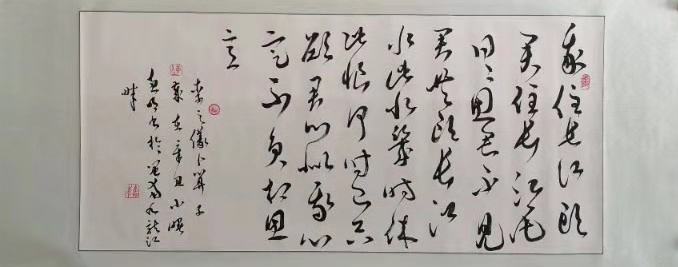 我住长江头
君住长江尾
日日思君不见
君共饮长江
水此水幾时休
此恨何时已只
愿君心似我心
定不负相思
意
李之儀卜算子
岁在辛丑小
书於九龙江
畔